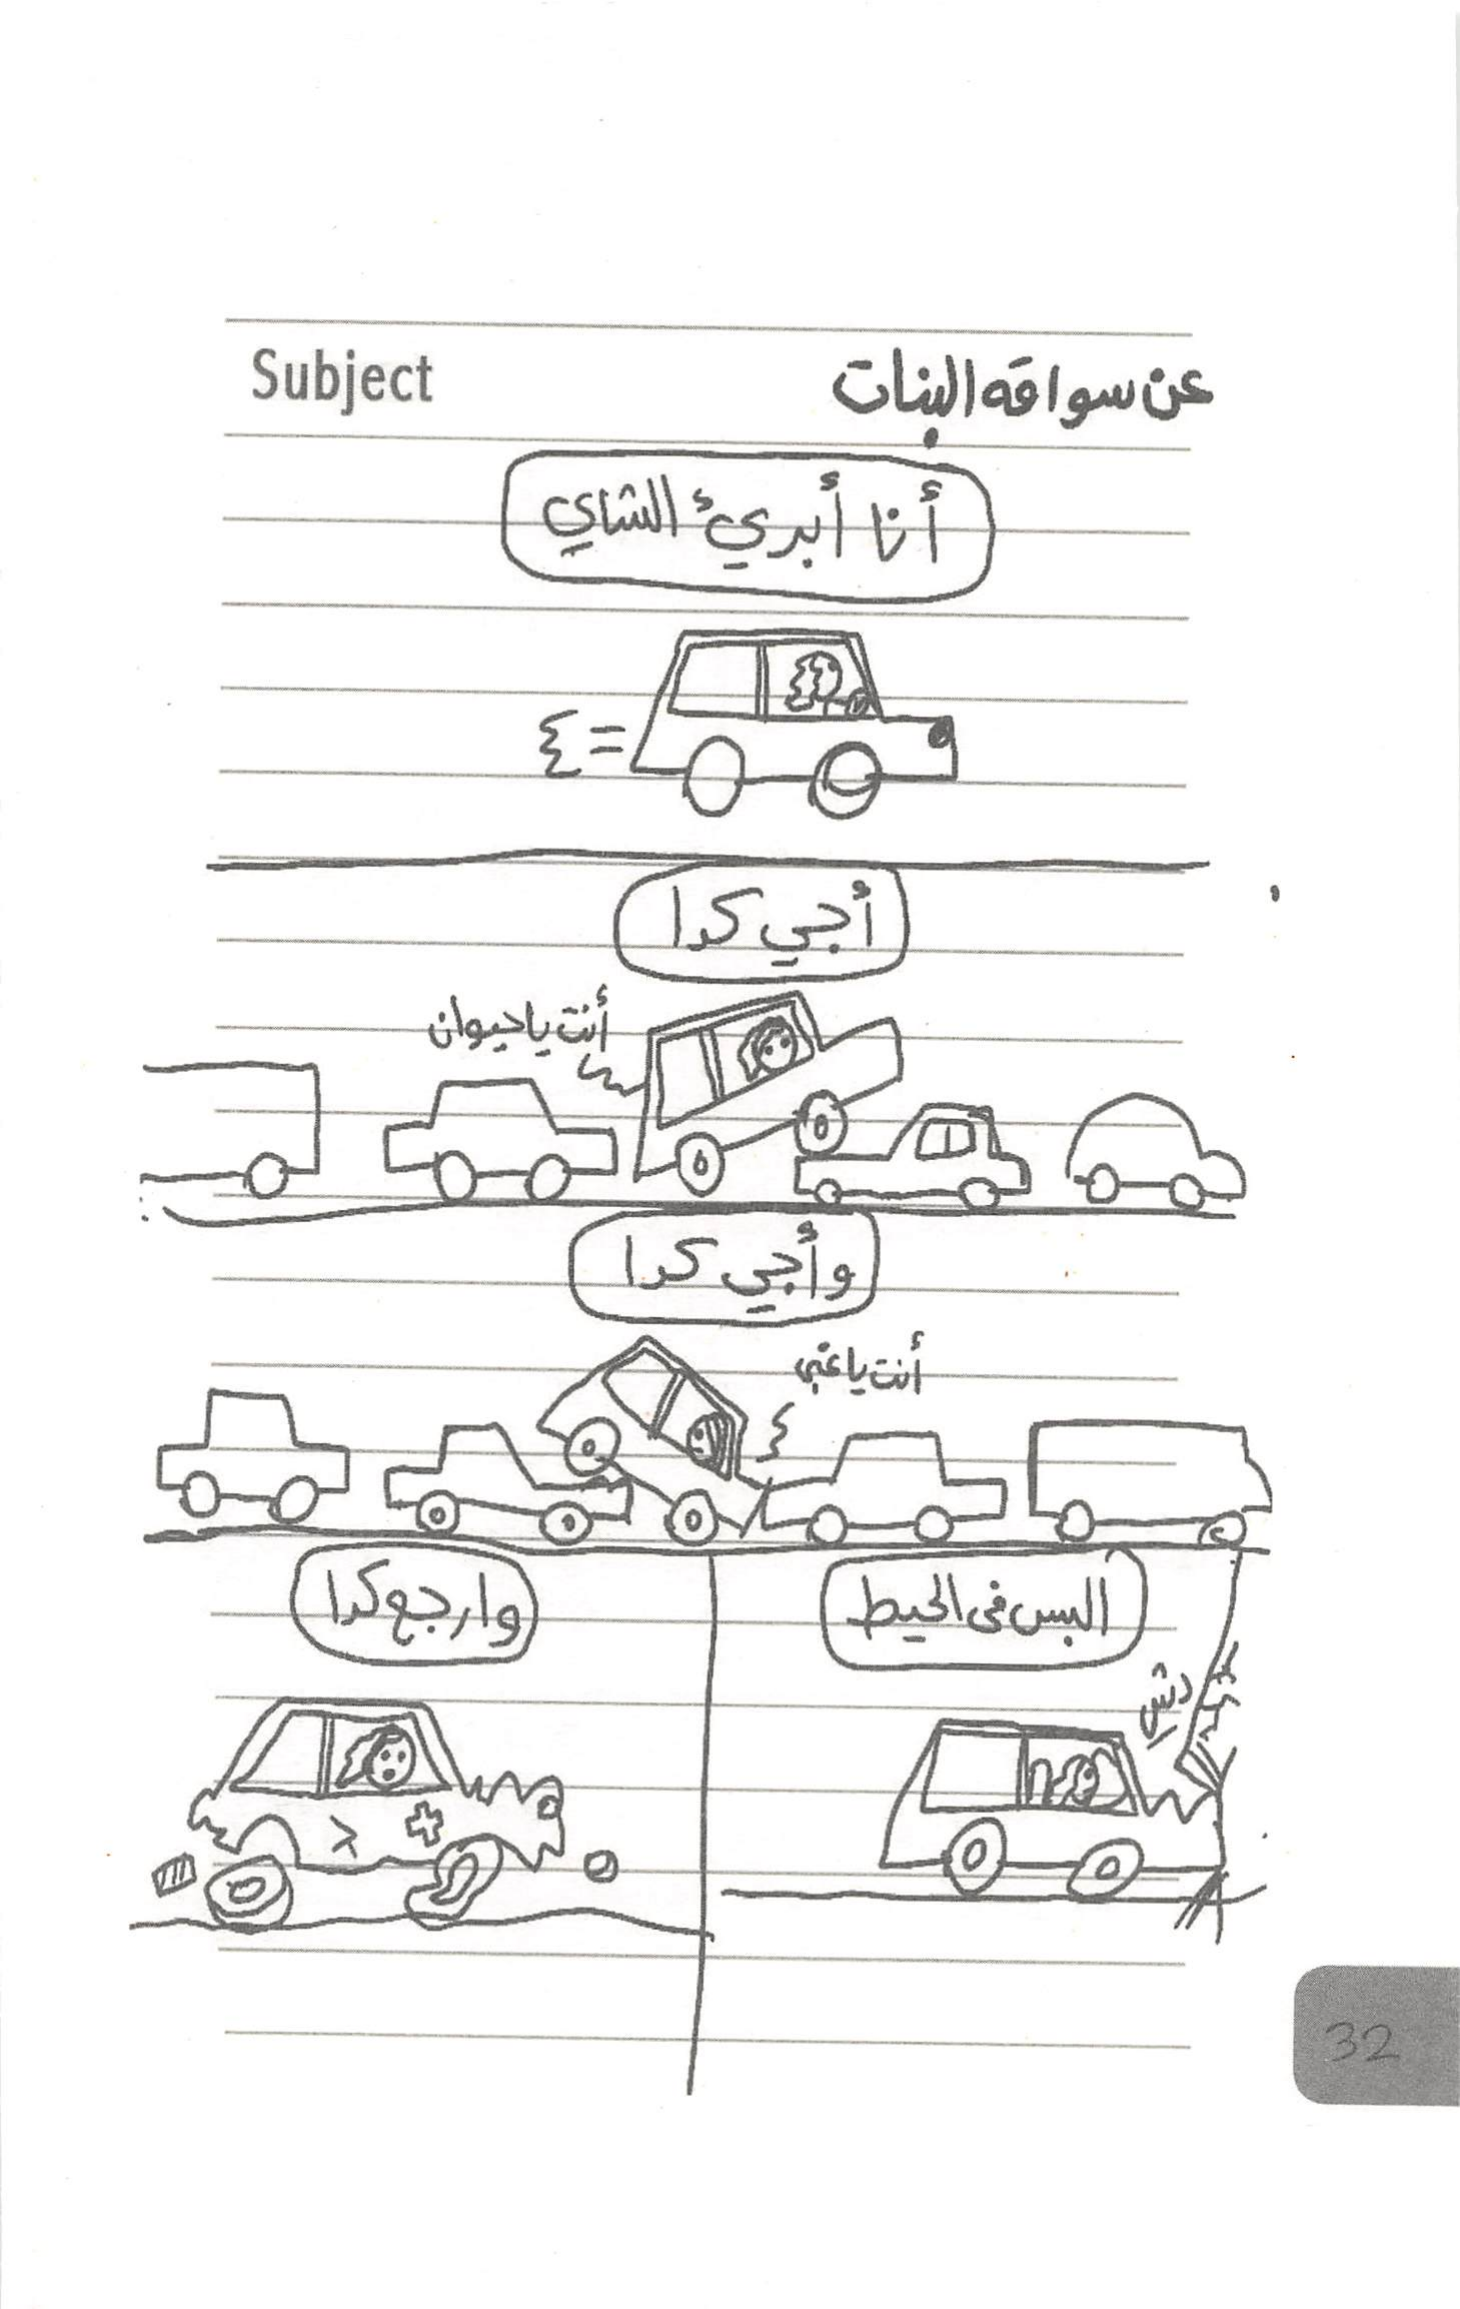 Subject
عن سواقه البنات
أنا أبريء الشاي
أجي كدا
أنت يا حيوان
وأجي كدا
أنت يا غبي
البس فى الحيط
دش
وارجع كدا
32